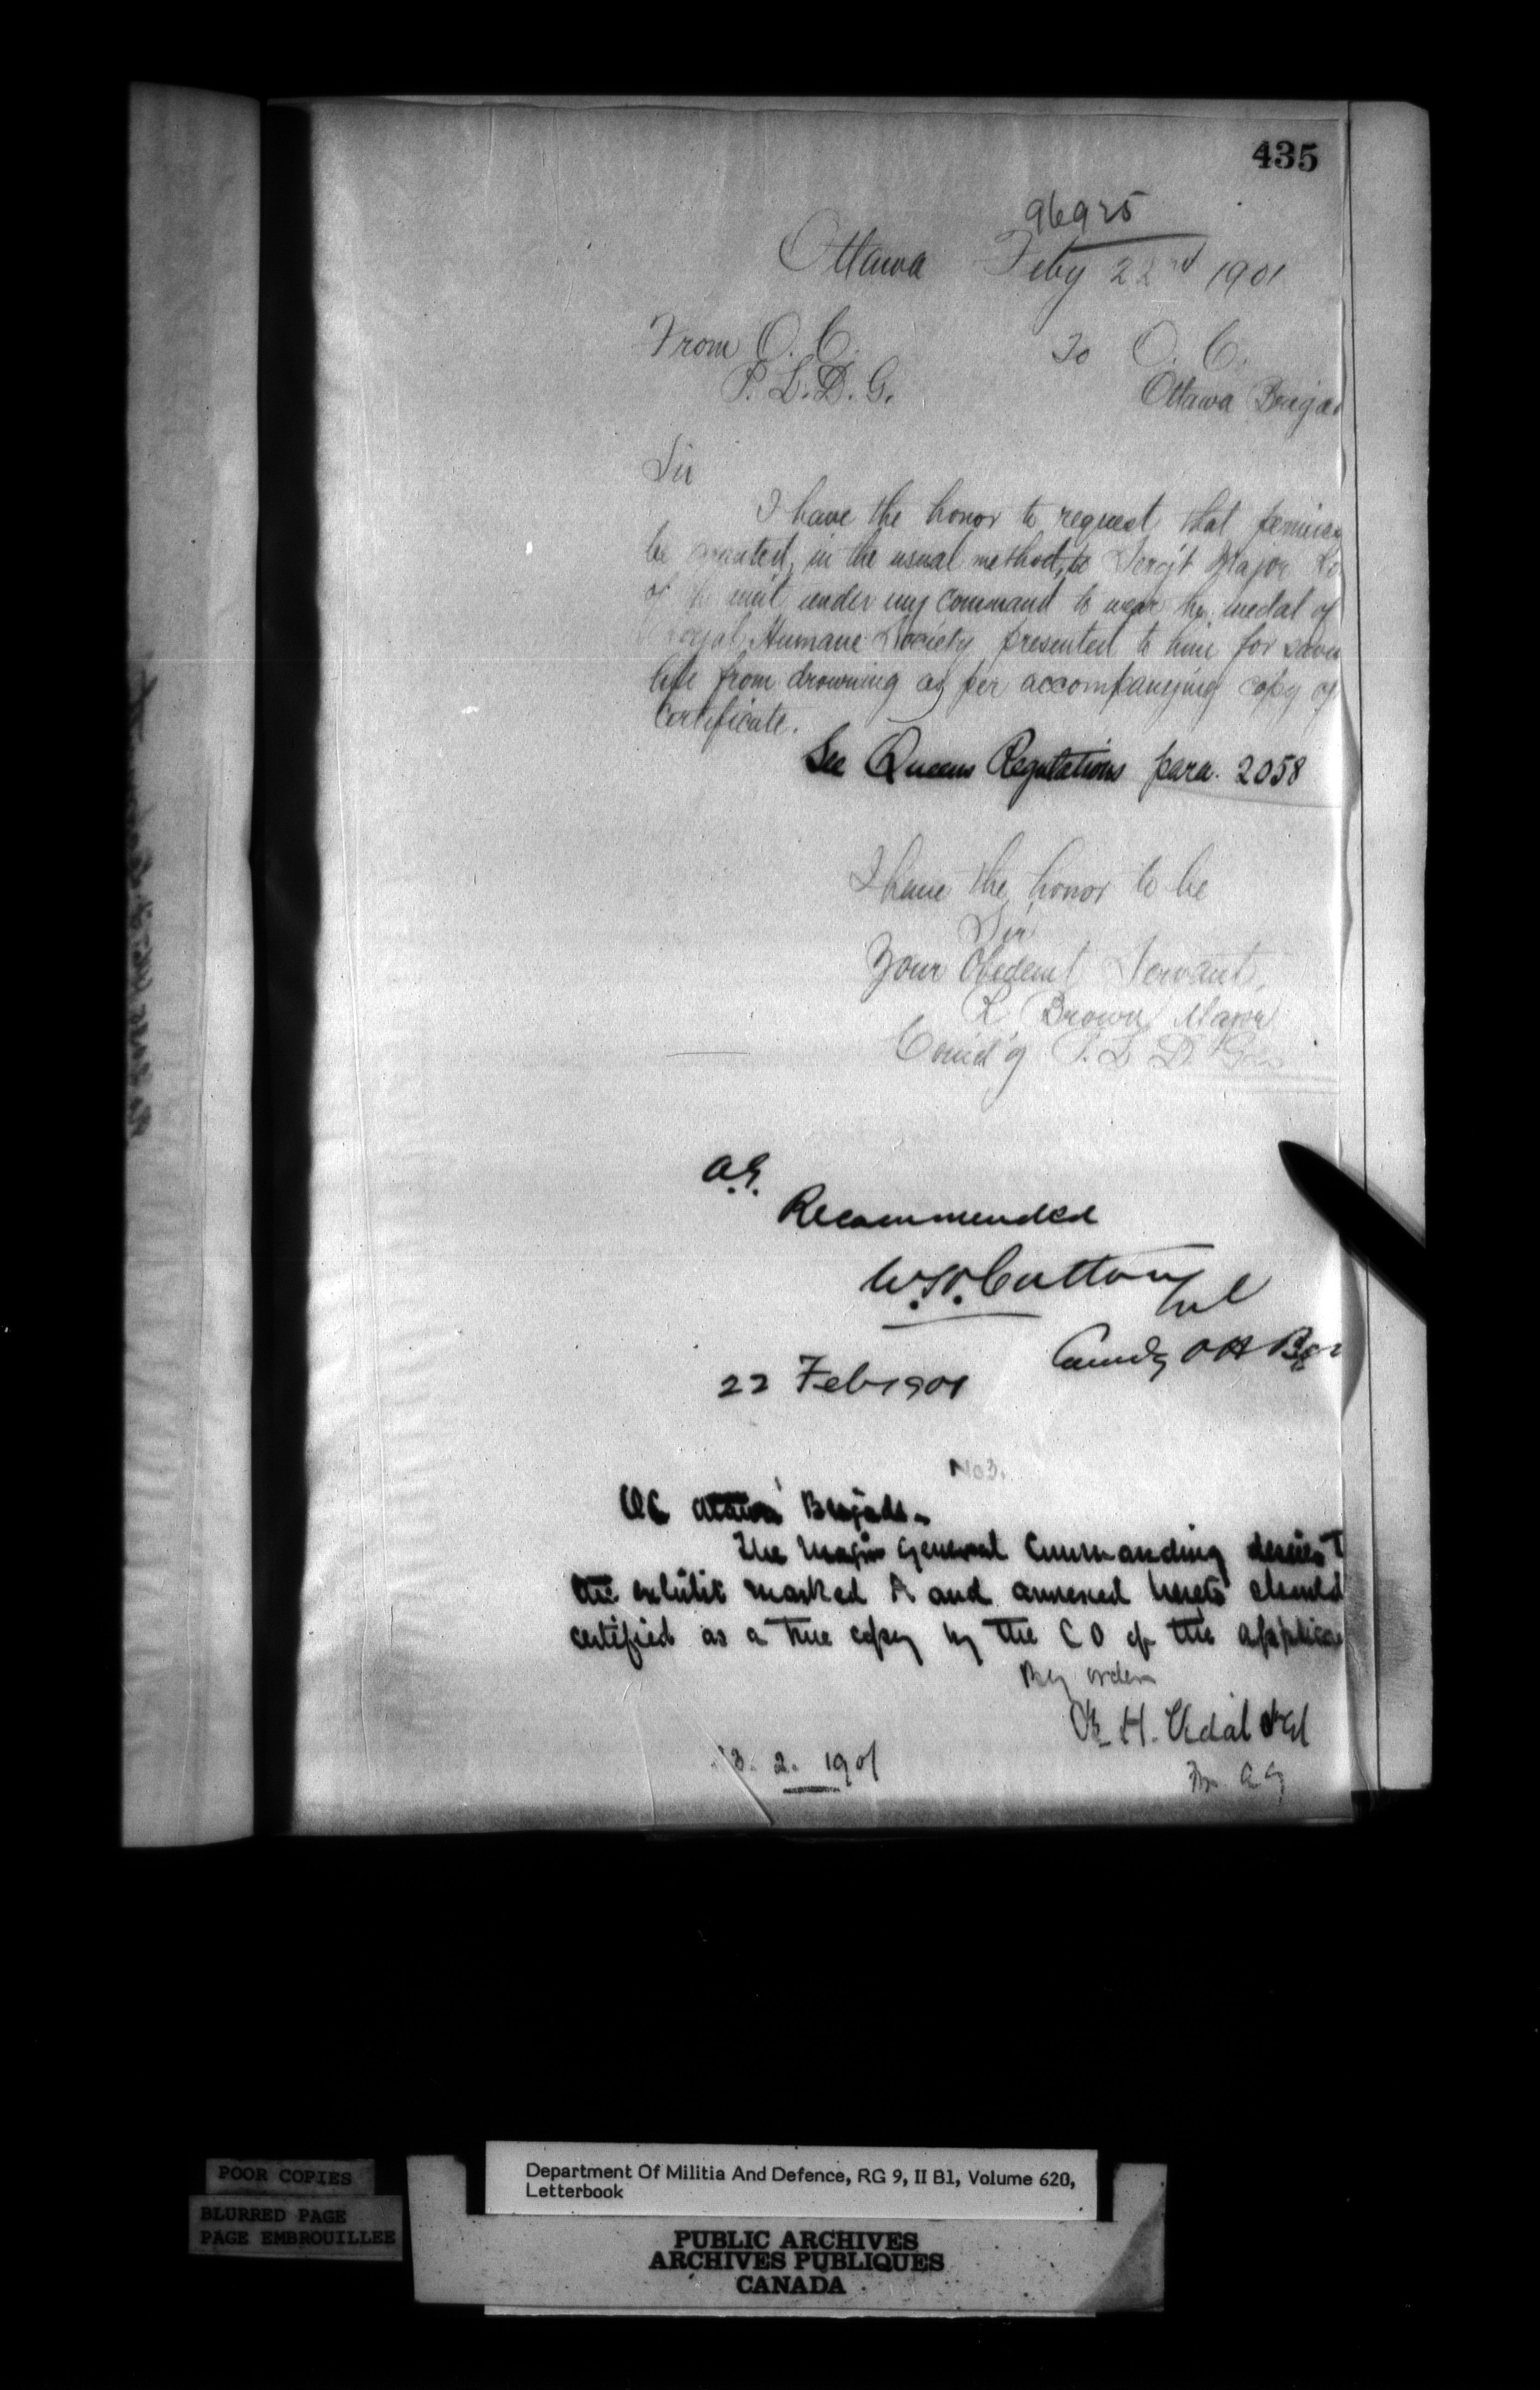 435
96925
Ottawa Feby 22nd 1901
From O. C. To O. C.
P. L. D. G. Ottawa Brigad
Sir
I have the honor to request that
be granted, in the usual method, to Sergt Major
of the unit under my command to wear the medal of
Royal Humane Society presented to him for
life from drowning as per accompanying copy of
Certificate.
See Queens Regulations para. 2058
I have the honor to be
Sir
Your Obedient Servant,
R Brown Major
Comd'g P. L. D. G
A.G.
Recommended
W.H. Cotton Col
Comdg O H
22 Feb 1901
No 3.
OC Ottawa Brigade.
The Major General Commanding desires
the exhibit marked A and annexed hereto should
certified as a true copy by the C O of the
By order
B H. Vidal
for A G
3. 2. 1901
POOR COPIES
BLURRED PAGE
PAGE EMBROUILLEE
Department Of Militia And Defence, RG 9, II B1, Volume 620,
Letterbook
PUBLIC ARCHIVES
ARCHIVES PUBLIQUES
CANADA